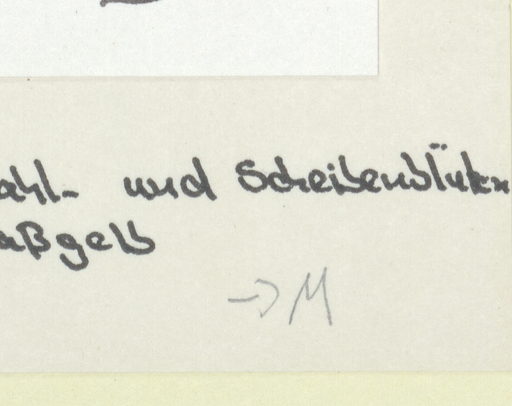 ahl- und Scheibenblüten
aßgelb
→ M